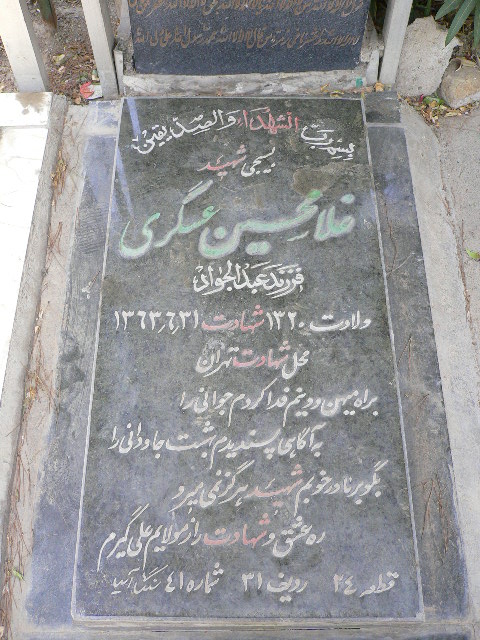 بسم رب الشهداء والصدیقین
بسیجی شهید
غلامحسین عسگری
فرزند عبدالجواد
ولادت ۱۳۲۰ شهادت ۱۳۶۳٫۶٫۳۱
محل شهادت تهران
براه میهن و دینم فدا کردم جوانی را
به آگاهی پسندیدم بهشت جاودانی را
بگو بر مادر خوبم شهید هرگز نمی‌میرد
ره عشق و شهادت را ز مولایم علی گیرم
قطعه ۲۴ ردیف ۳۱ شماره ۴۱ سنگ آسیا